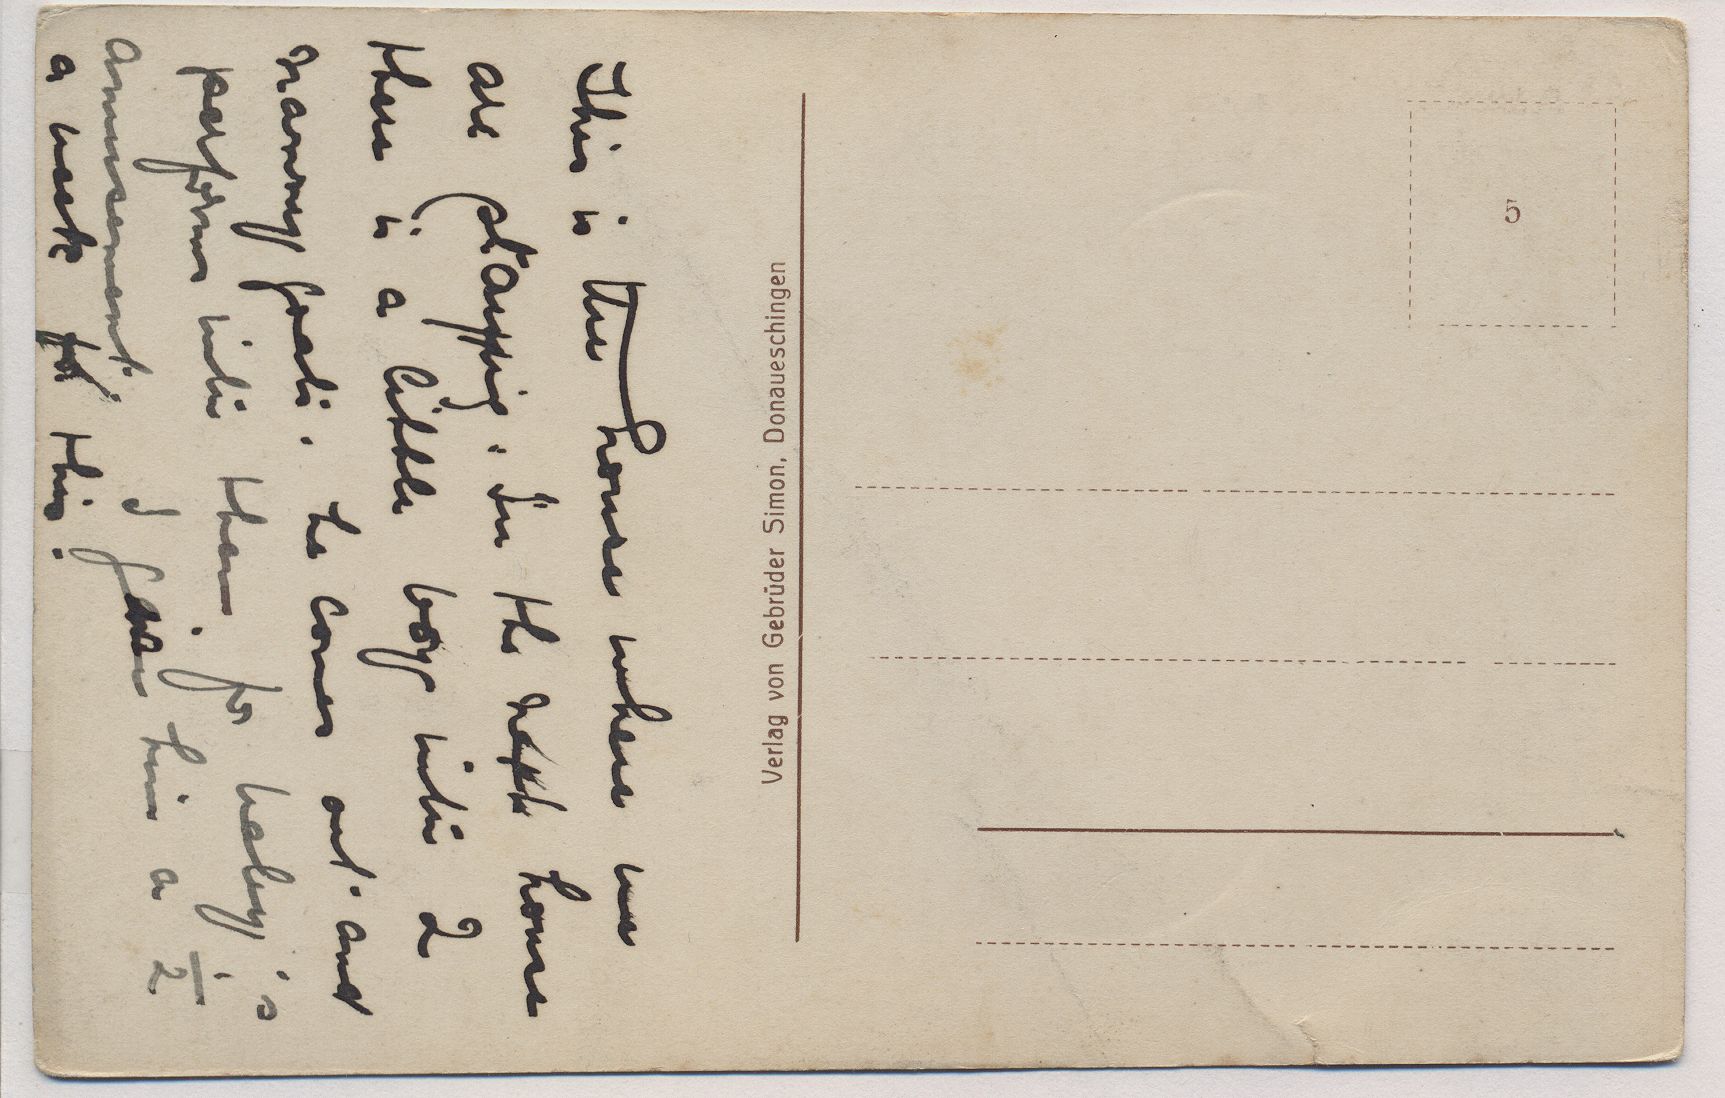 This is the house where we
are staying. In the next house
there is a little boy with 2
nanny goats. he comes out and
performs with them, for baby's
amusement. I gave him a 1/2
a mark for this.
Verlag von Gebrüder Simon, Donaueschingen
5